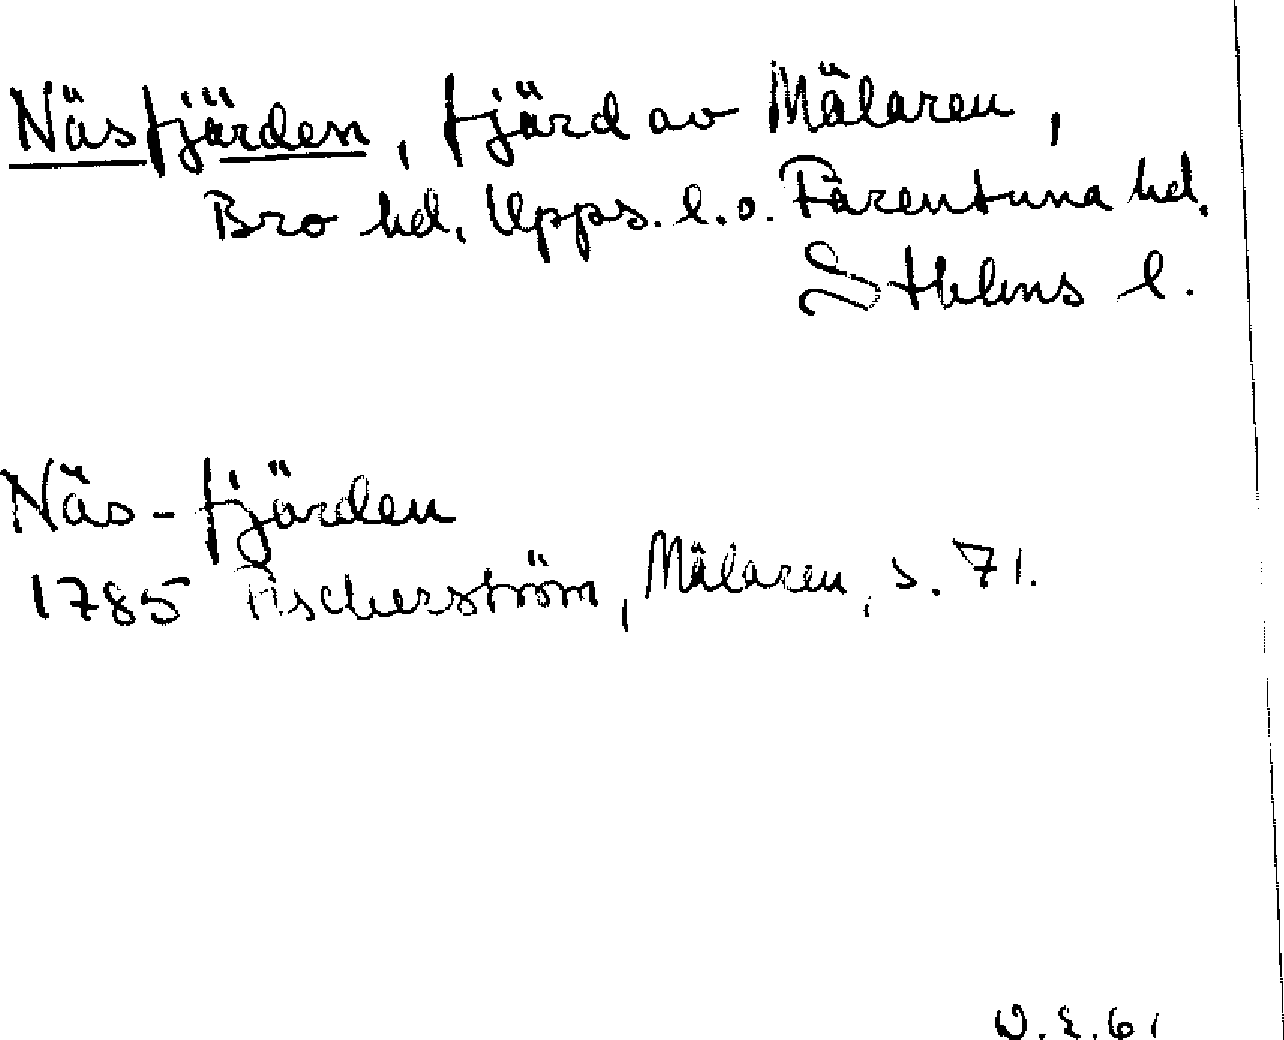 Näsfjärden, fjärd av Mälaren,
Bro hd. Upps. l. o. Färentuna hd.
Sthlms l.
Näs-fjärden
1785 Fischerström, Mälaren, s. 71.
V.E.61